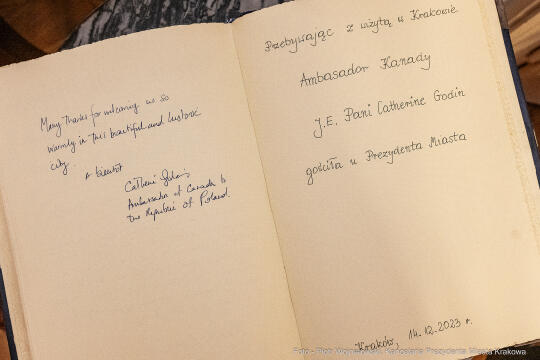 Many thanks for welcoming us so
warmly in this beautiful and historic
city.
A bientôt
Ambassador of Canada to
the Republic of Poland.
Przebywając z wizytą w Krakowie
Ambasador Kanady
J.E. Pani Catherine Godin
gościła u Prezydenta Miasta
Kraków, 14.12.2023 r.
Kancelaria Prezydenta Miasta Krakowa